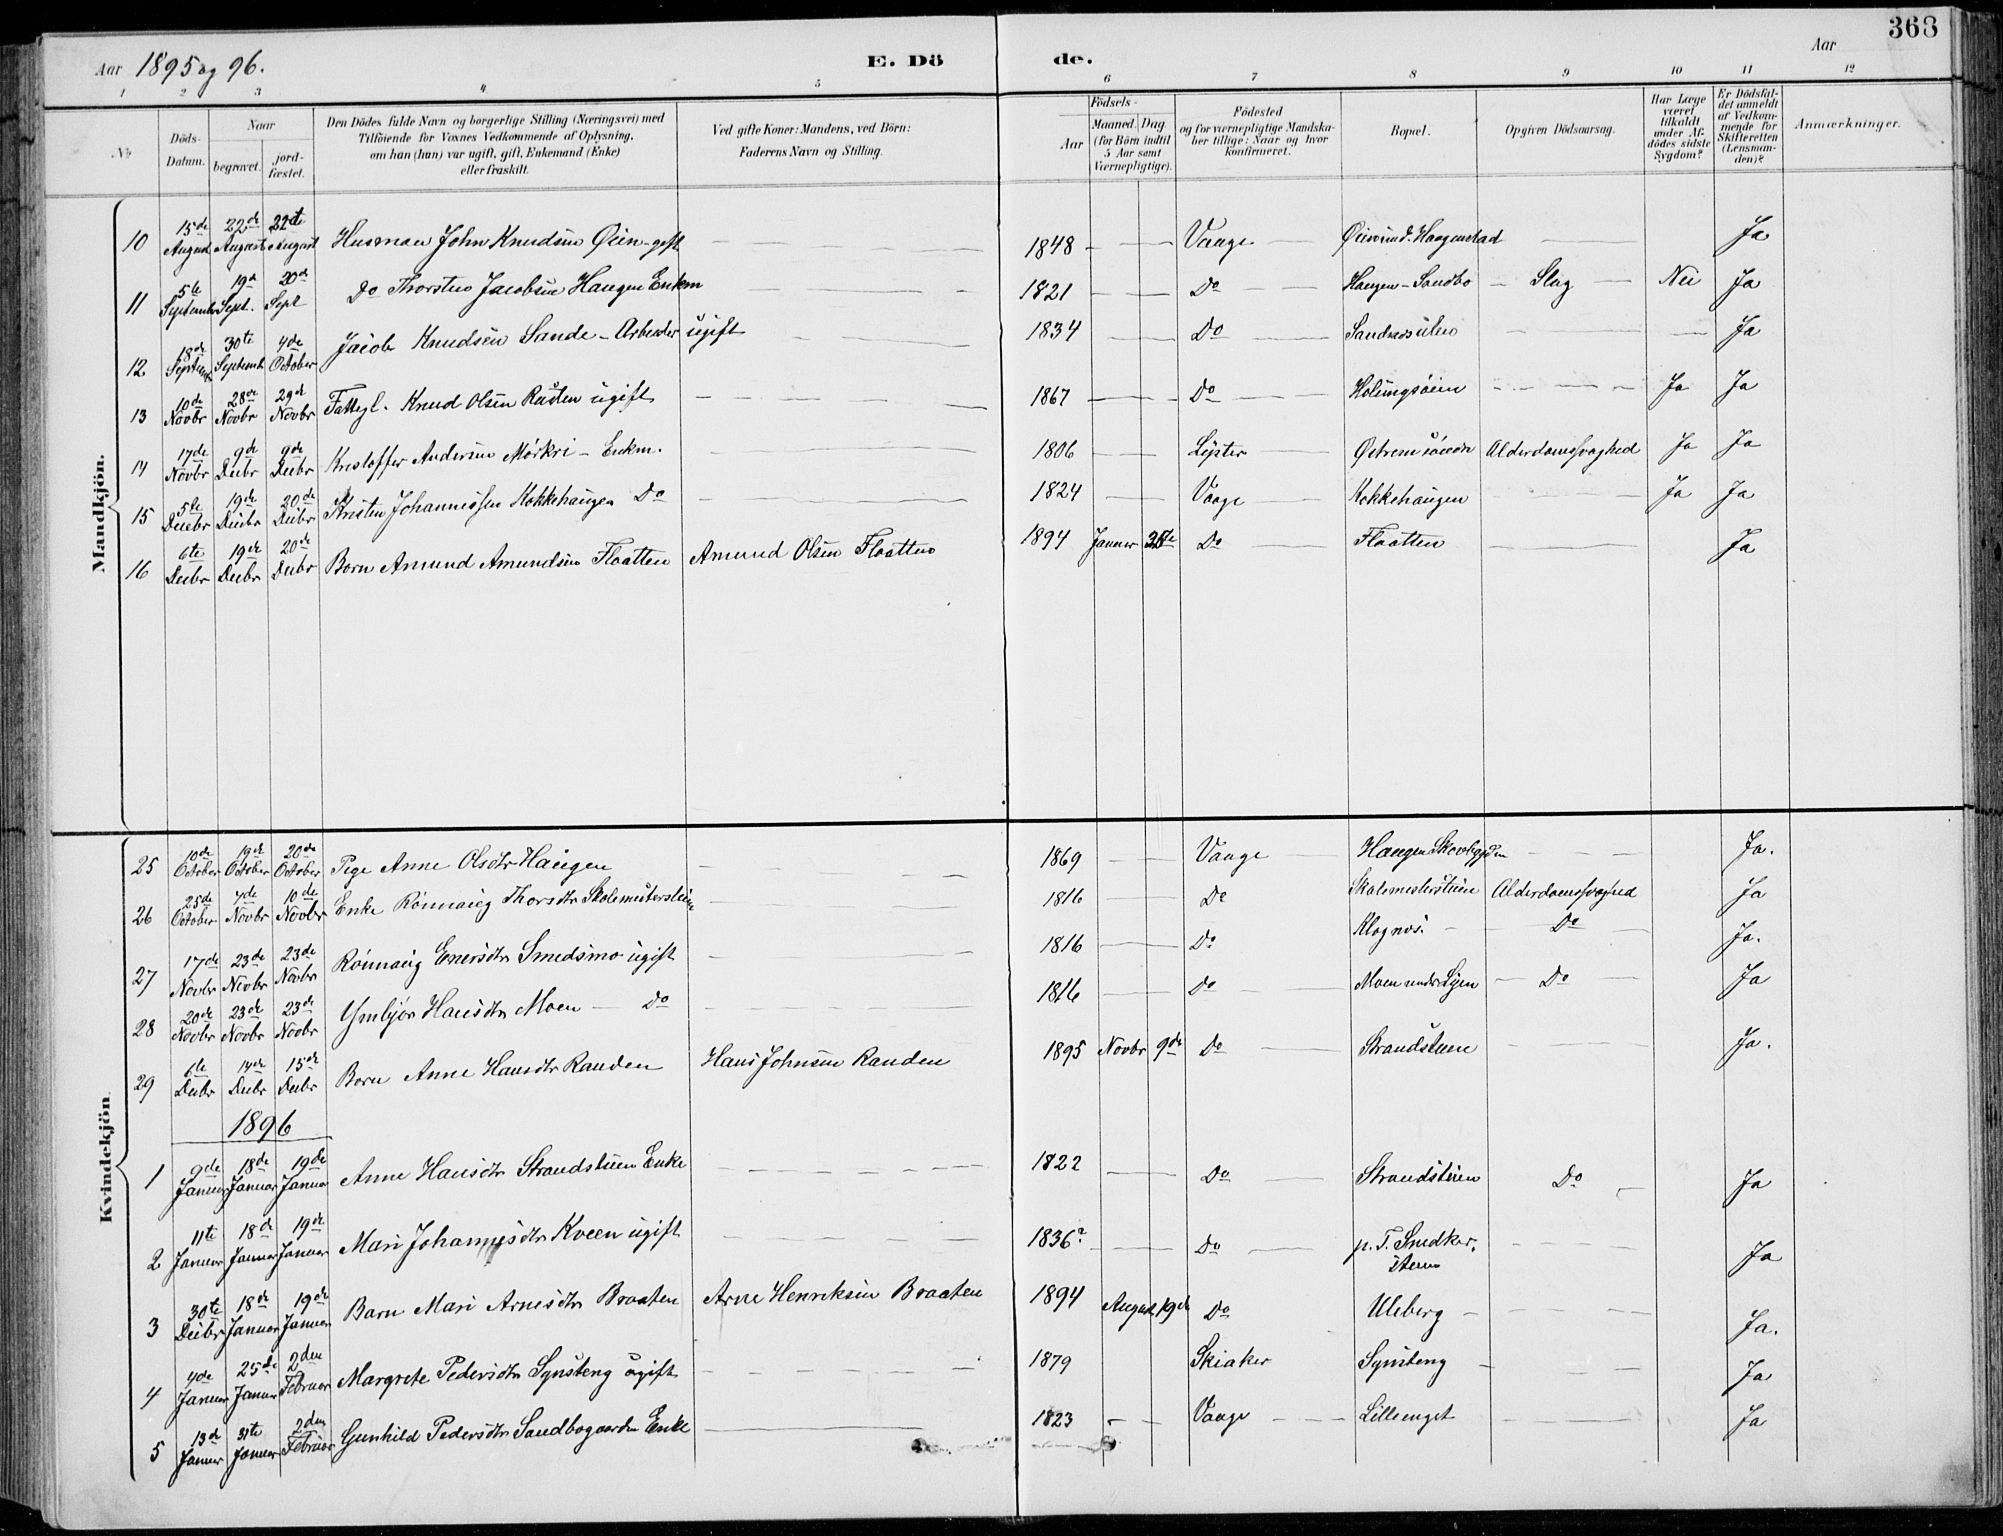 Aar 1895 og 96. E. Dö de. Aar 368
1 2 3 4 5 6 7 8 9 10 11 12
No
Döds-Datum.
Naar begravet. jordfæstet.
Den Dödes fulde Navn og borgerlige Stilling (Næringsvei) med
Tilföiende for Voxnes Vedkommende af Oplysning,
om han (hun) var ugift, gift, Enkemand (Enke)
eller fraskilt.
Ved gifte Koner: Mandens, ved Börn:
Faderens Navn og Stilling.
Födsels-
Aar Maaned. Dag.
(for Börn indtil
5 Aar samt
Værnepligtige).
Födested
og for værnepligtige Mandska-
ber tillige: Naar og hvor
konfirmeret.
Bopæl.
Opgiven Dödsaarsag.
Har Læge
været
tilkaldt
under Af-
dödes sidste
Sygdom?
Er Dödsfal-
det anmeldt
af Vedkom-
mende for
Skifteretten
(Lensman-
den)?
Anmærkninger.
Mandkjön.
10 15de August 22de August 22de August Husman John Knudsen Öien - gift 1848 Vaage Ja
11 5te September 19de Sept. 20de Sept Do Thorsten Jacobsen Haugen Enkm 1821 Do Haugen - Sandbo Slag Nei Ja
12 18de Septemb 30te Septemb 4de October Jacob Knudsen Sande - Arbeider ugift 1834 Do Ja
13 10de Novbr 28de Novbr 29de Novbr Fattigl. Knud Olsen Rusten ugift 1867 Do Holungsöien Ja Ja
14 17de Novbr 9de Decbr 9de Decbr Kristoffer Andersen Mörkri - Enkm. 1806 Lyster Alderdomssvaghed Ja Ja
15 5te Decbr 19de Decbr 20de Decbr Kristen Johannessen Kokkehaugen Do 1824 Vaage Kokkehaugen Ja Ja
16 6te Decbr 19de Decbr 20de Decbr Barn Amund Amundsen Flaatten Amund Olsen Flaatten 1894 Januar Do Flaatten Ja
Kvindekjön.
25 10de October 19de October 20de October Pige Anne Olsdtr Haugen 1869 Vaage Haugen Skovbygden Ja.
26 25de October 4de Novbr 10de Novbr Enke Rönnaug Thorsdtr Skolemestersteien 1816 Do Skolemestersteien Alderdomssvaghed Ja
27 17de Novbr 23de Novbr 23de Novbr Rönnaug Enersdtr Smedsmo ugift 1816 Do Klognes. Do Ja.
28 20de Novbr 23de Novbr 23de Novbr Ymbjör Hansdtr Moen Do 1816 Do Moen under Do Ja
29 6te Decbr 14de Decbr 15de Decbr Barn Anne Hansdtr Randen Hans Johnsen Randen 1895 Novbr 9de Do Strandsteien Ja.
1896
1 9de Januar 18de Januar 19de Januar Anne Hansdtr Strandsteien Enke 1822 Do Strandsteien Do Ja
2 11te Januar 18de Januar 19de Januar Mari Johannesdtr Kveen ugift 1836? Do p. T. Snedker- Ja
3 30te Decbr 18de Januar 19de Januar Barn Mari Arnesdtr Braaten Arne Henriksen Braaten 1894 August 19de Do Uleberg Ja.
4 4de Januar 25de Januar 2den Februar Margrete Pedersdtr Synsteng ugift 1879 Skiaker Synsteng Ja
5 13de Januar 31te Januar 2den Februar Gunhild Pedersdtr Sandbogaarden Enke 1823 Vaage Lilleenget Ja